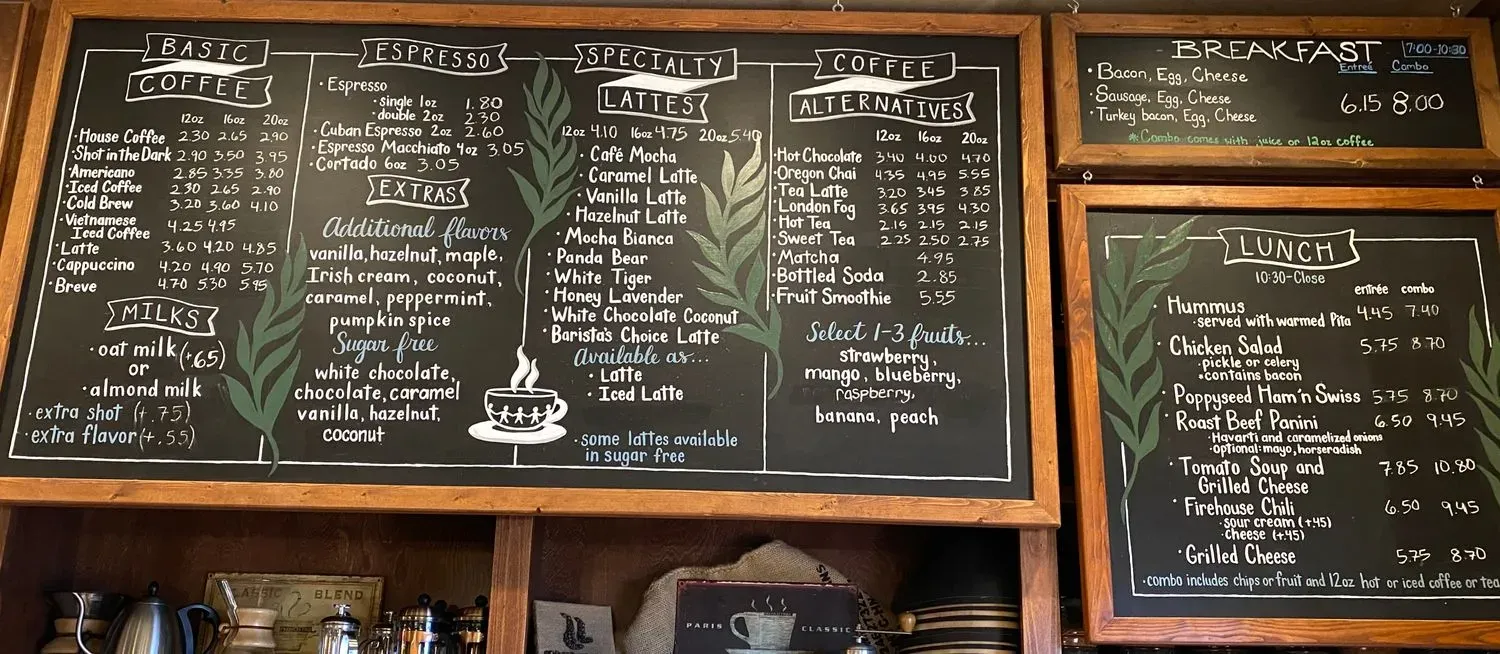 BASIC
COFFEE
12oz 16oz 20oz
·House Coffee 2.30 2.65 2.90
·Shot in the Dark 2.90 3.50 3.95
·Americano 2.85 3.35 3.80
·Iced Coffee 2.30 2.65 2.90
·Cold Brew 3.20 3.60 4.10
·Vietnamese
Iced Coffee 4.25 4.95
·Latte 3.60 4.20 4.85
·Cappuccino 4.20 4.90 5.70
·Breve 4.70 5.30 5.95
MILKS
·oat milk (+.65)
or
·almond milk
·extra shot (+.75)
·extra flavor (+.55)
ESPRESSO
·Espresso
·single 1oz 1.80
·double 2oz 2.30
·Cuban Espresso 2oz 2.60
·Espresso Macchiato 4oz 3.05
·Cortado 6oz 3.05
EXTRAS
Additional flavors
vanilla, hazelnut, maple,
Irish cream, coconut,
caramel, peppermint,
pumpkin spice
Sugar free
white chocolate,
chocolate, caramel
vanilla, hazelnut,
coconut
SPECIALTY
LATTES
12oz 4.10 16oz 4.75 20oz 5.40
·Café Mocha
·Caramel Latte
·Vanilla Latte
·Hazelnut Latte
·Mocha Bianca
·Panda Bear
·White Tiger
·Honey Lavender
·White Chocolate Coconut
·Barista's Choice Latte
Available as...
·Latte
·Iced Latte
·some lattes available
in sugar free
COFFEE
ALTERNATIVES
12oz 16oz 20oz
·Hot Chocolate 3.40 4.00 4.70
·Oregon Chai 4.35 4.95 5.55
·Tea Latte 3.20 3.45 3.85
·London Fog 3.65 3.95 4.30
·Hot Tea 2.15 2.15 2.15
·Sweet Tea 2.25 2.50 2.75
·Matcha 4.95
·Bottled Soda 2.85
·Fruit Smoothie 5.55
Select 1-3 fruits...
strawberry,
mango, blueberry,
raspberry,
banana, peach
BREAKFAST 7:00-10:30
Entreé Combo
·Bacon, Egg, Cheese
·Sausage, Egg, Cheese 6.15 8.00
·Turkey bacon, Egg, Cheese
*Combo comes with juice or 12oz coffee
LUNCH
10:30-Close
entrée combo
·Hummus 4.45 7.40
·served with warmed Pita
·Chicken Salad 5.75 8.70
·pickle or celery
*contains bacon
·Poppyseed Ham'n Swiss 5.75 8.70
·Roast Beef Panini 6.50 9.45
·Havarti and caramelized onions
·Optional: mayo, horseradish
·Tomato Soup and 7.85 10.80
Grilled Cheese
·Firehouse Chili 6.50 9.45
·sour cream (+.45)
·cheese (+.45)
·Grilled Cheese 5.75 8.70
·combo includes chips or fruit and 12oz hot or iced coffee or tea
CLASSIC BLEND
PARIS CLASSIC